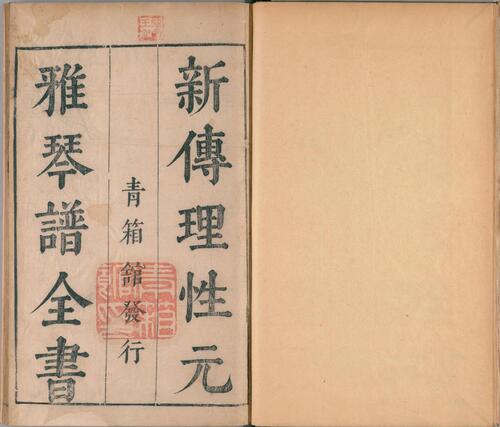 新傳理性元
青箱館發行
雅琴譜全書